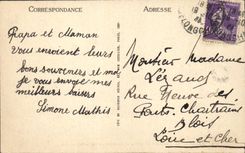 CORRESPONDANCE
ADRESSE
Papa et Maman
vous envoient leurs
bons souvenirs et moi
je vous envoie mes
meilleurs baisers
Simone Mathis
Monsieur Madame
Rue Neuve des
Ponts Chartrains
Blois
Loire et Cher